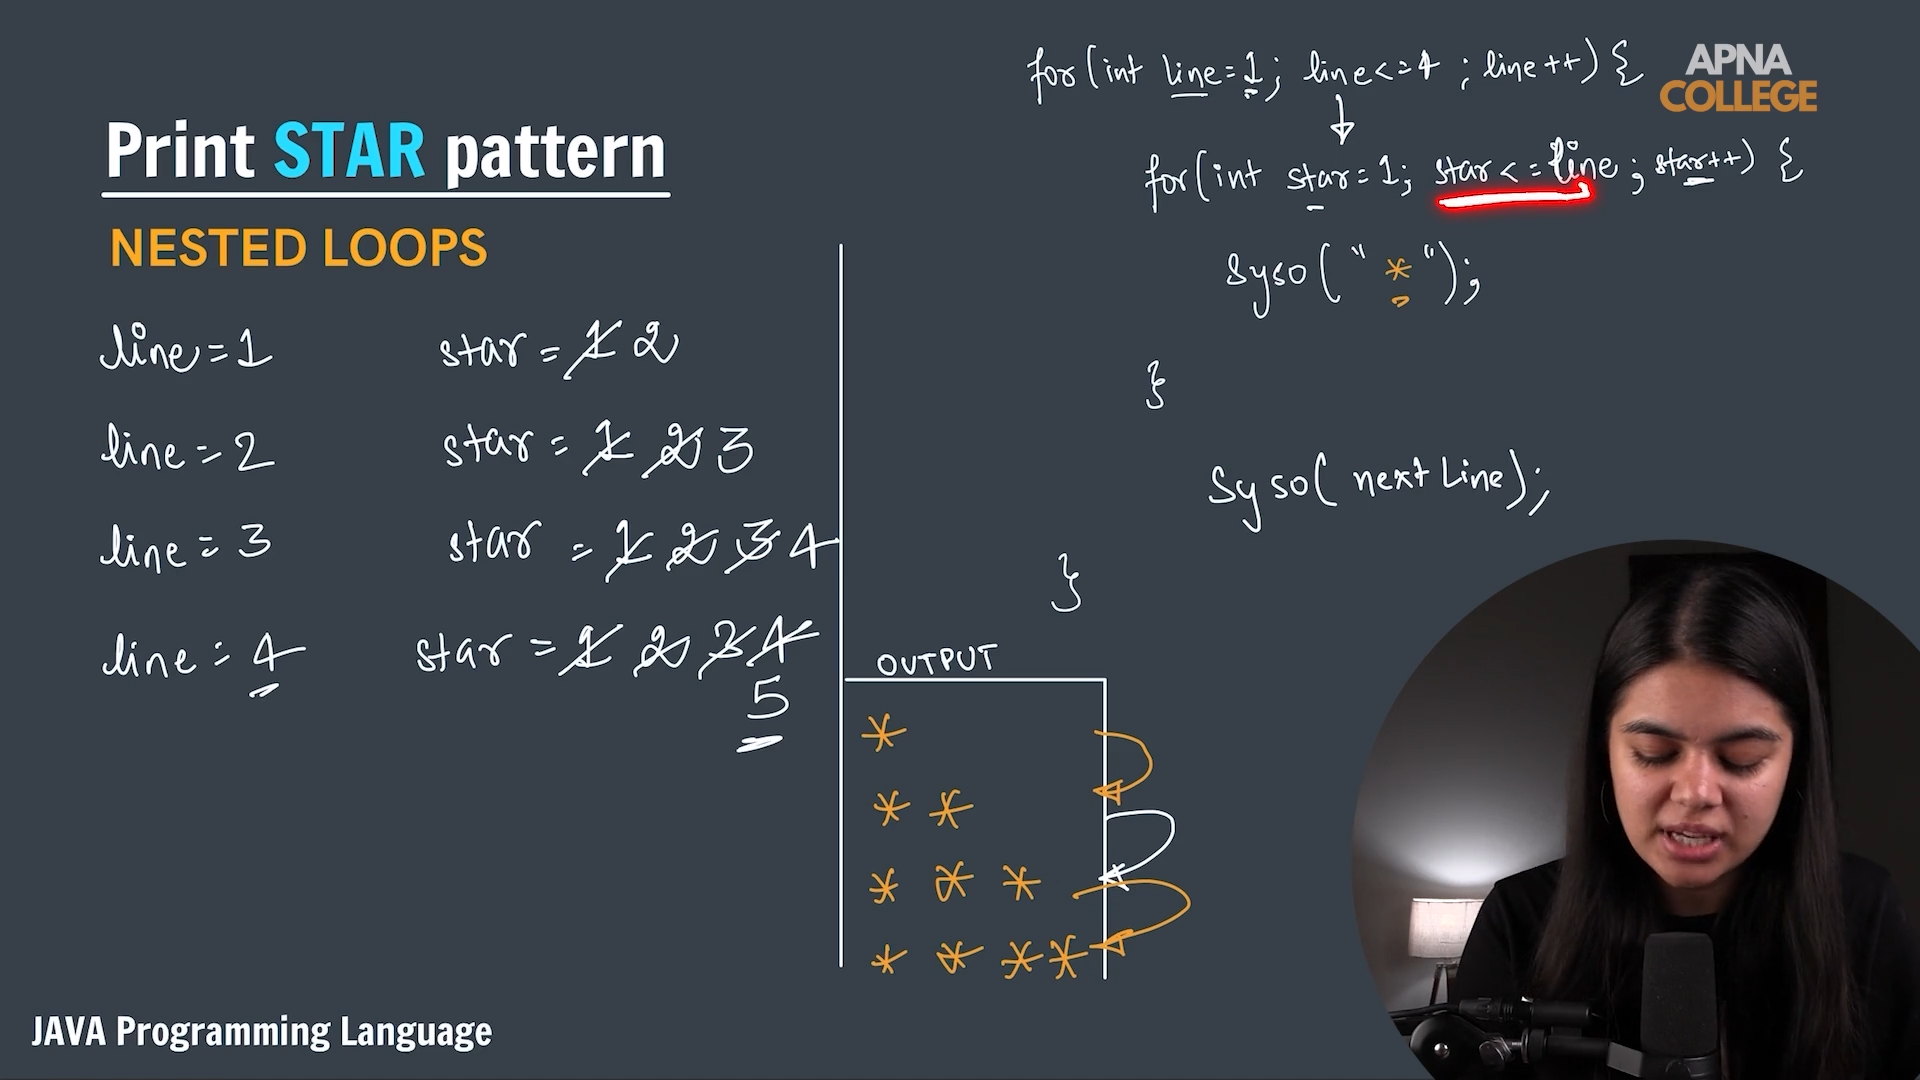 Print STAR pattern
NESTED LOOPS
line = 1 star = 1 2
line = 2 star = 1 2 3
line = 3 star = 1 2 3 4
line = 4 star = 1 2 3 4
5
for(int line=1; line<=4 ; line++) {
for(int star=1; star<=line ; star++) {
Syso( " * " );
}
Syso( next Line);
}
OUTPUT
*
* *
* * *
* * * *
APNA
COLLEGE
JAVA Programming Language